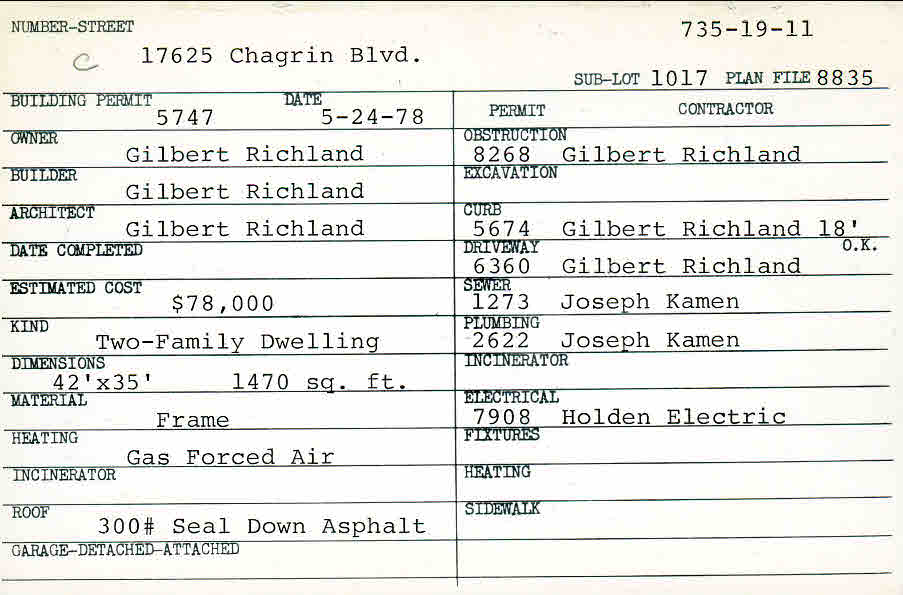 NUMBER-STREET
735-19-11
C 17625 Chagrin Blvd.
SUB-LOT 1017 PLAN FILE 8835
BUILDING PERMIT DATE
5747 5-24-78
OWNER
Gilbert Richland
BUILDER
Gilbert Richland
ARCHITECT
Gilbert Richland
DATE COMPLETED
ESTIMATED COST
$78,000
KIND
Two-Family Dwelling
DIMENSIONS
42'x35' 1470 sq. ft.
MATERIAL
Frame
HEATING
Gas Forced Air
INCINERATOR
ROOF
300# Seal Down Asphalt
GARAGE-DETACHED-ATTACHED
PERMIT CONTRACTOR
OBSTRUCTION
8268 Gilbert Richland
EXCAVATION
CURB
5674 Gilbert Richland 18'
DRIVEWAY O.K.
6360 Gilbert Richland
SEWER
1273 Joseph Kamen
PLUMBING
2622 Joseph Kamen
INCINERATOR
ELECTRICAL
7908 Holden Electric
FIXTURES
HEATING
SIDEWALK